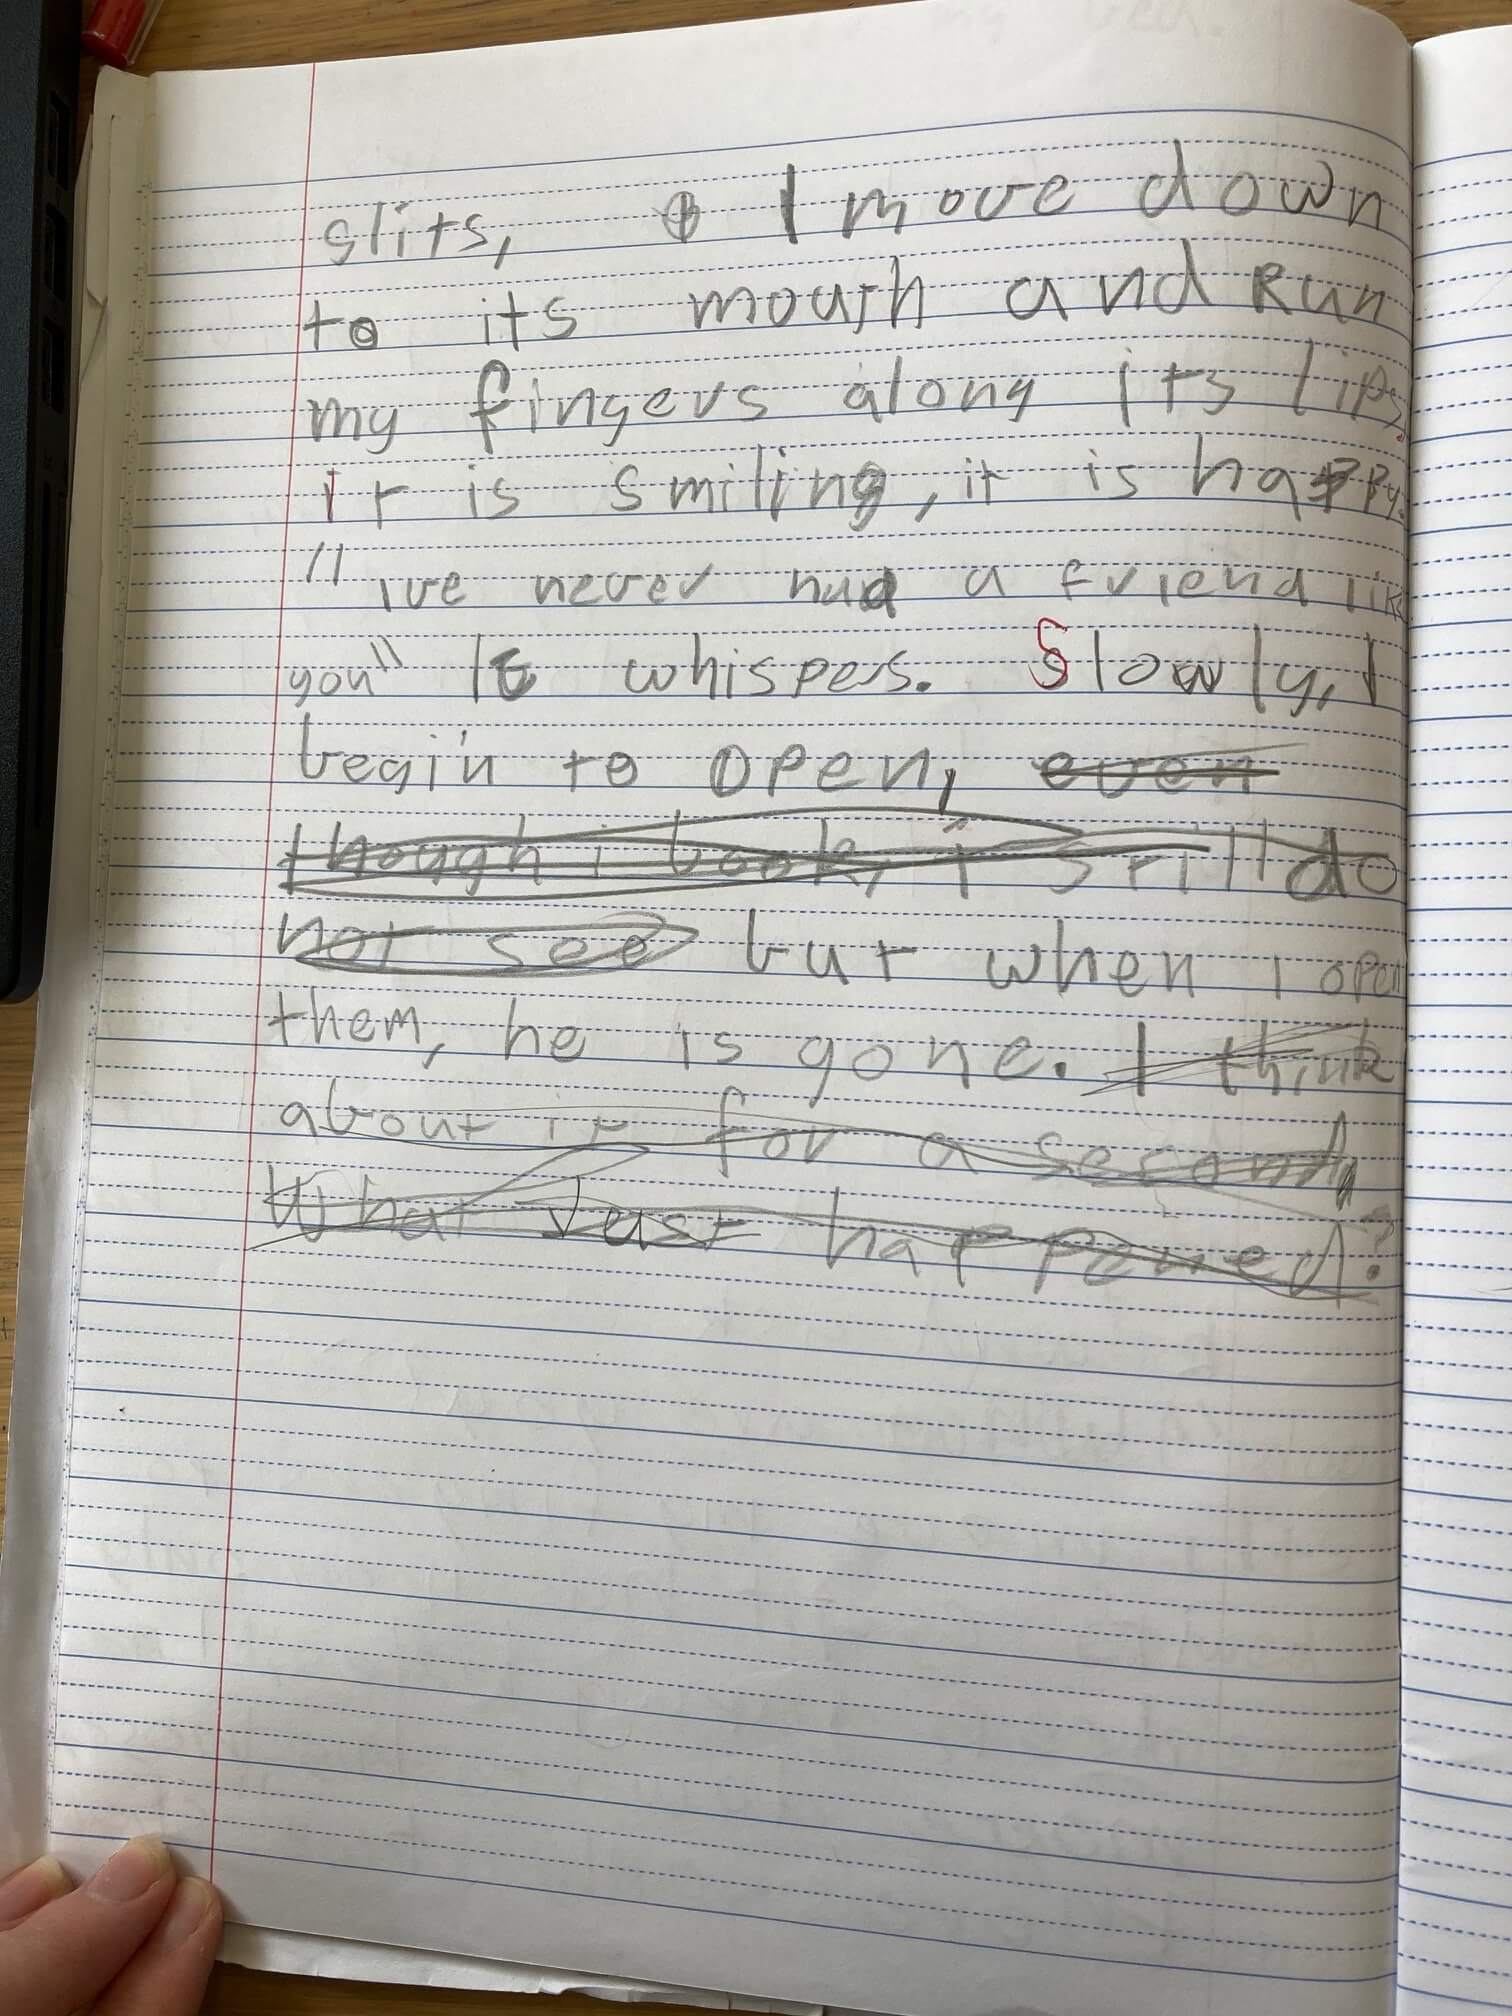 slits, I move down
to its mouth and Run
my fingers along its lips.
it is smiling, it is happy.
"ive never had a friend like
you" It whispers. Slowly, I
begin to open, even
though i look, i still do
not see but when i open
them, he is gone. I think
about it for a second,
What Just happened?